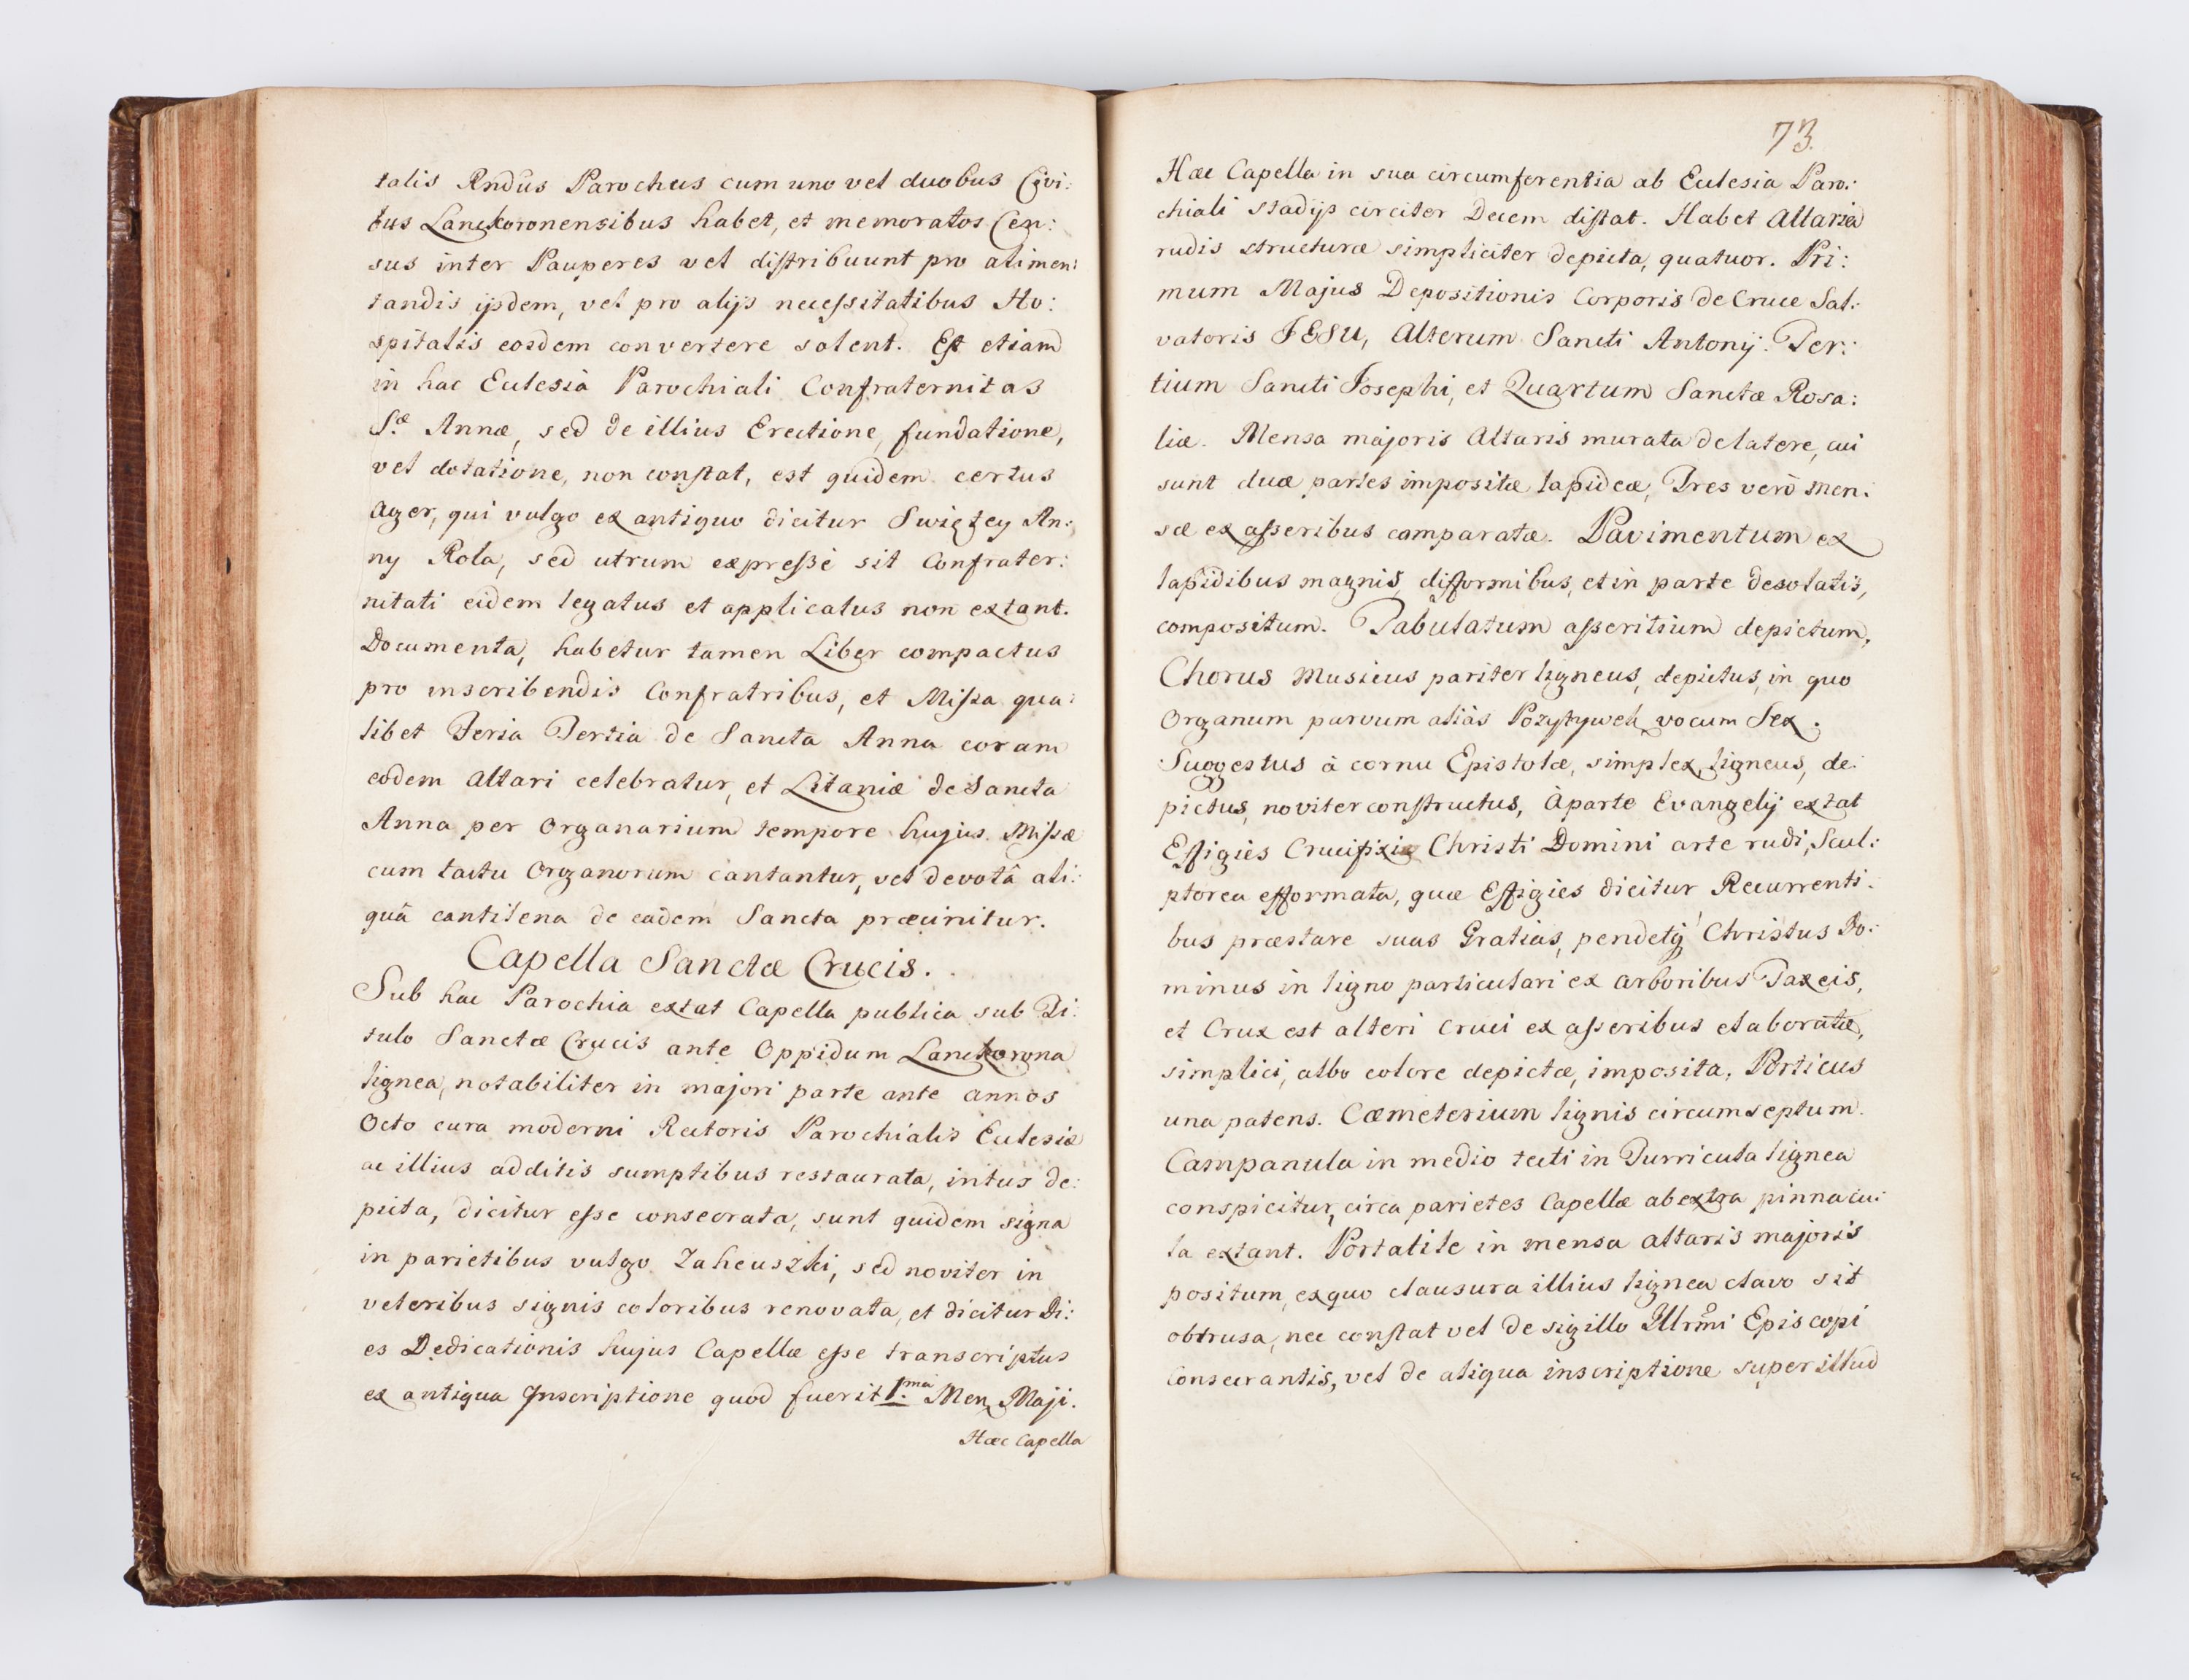 talis Rndus Parochus cum uno vel duobus Civi:
bus Lanckoronensibus habet, et memoratos Cen:
sus inter Pauperes vel distribuunt pro alimen:
tandis ijsdem, vel pro alijs necessitatibus Ho:
spitalis eosdem convertere solent. Est etiam
in hac Eclesia Parochiali Confraternitas
S.æ Annæ, sed de illius Erectione, fundatione,
vel dotatione, non constat, est quidem certus
Ager, qui vulgo ex antiquo dicitur Swiętey An:
ny Rola, sed utrum expresse sit Confrater:
nitati eidem legatus et applicatus non extant.
Documenta, habetur tamen Liber compactus
pro inscribendis Confratribus, et Missa qua:
libet Feria Tertia de Sancta Anna coram
eodem Altari celebratur, et Litaniæ de Sancta
Anna per Organarium tempore hujus Missæ
cum tactu Organorum cantantur, vel devotâ ali:
quâ cantilena de eadem Sancta præcinitur.
Capella Sanctæ Crucis.
Sub hac Parochia extat Capella publica sub Ti:
tulo Sanctæ Crucis ante Oppidum Lanckorona
lignea, notabiliter in majori parte ante annos
Octo cura moderni Rectoris Parochialis Eclesiæ
ac illius additis sumptibus restaurata, intus de:
picta, dicitur esse consecrata, sunt quidem signa
in parietibus vulgo Zaheuszki, sed noviter in
veteribus signis coloribus renovata, et dicitur Di:
es Dedicationis hujus Capellæ esse transcriptus
ex antiqua Inscriptione quod fuerit 1.ma Men Maji.
Hæc Capella
73.
Hæc Capella in sua circumferentia ab Eclesia Paro:
chiali stadijs circiter Decem distat. Habet Altaria
rudis structuræ simpliciter depicta, quatuor. Pri:
mum Majus Depositionis Corporis de Cruce Sal:
vatoris JESU, Alterum Sancti Antonij. Ter:
tium Sancti Josephi, et Quartum Sanctæ Rosa:
liæ. Mensa majoris Altaris murata de latere, cui
sunt duæ partes impositæ lapideæ, Tres verò men:
sæ ex asseribus comparatæ. Pavimentum ex
lapidibus magnis, difformibus, et in parte desolatis,
compositum. Tabulatum asseritium depictum,
Chorus Musicus pariter ligneus, depictus, in quo
Organum parvum aliàs Pozytywek vocum Sex.
Suggestus à cornu Epistolæ, simplex, ligneus, de:
pictus, noviter constructus, à parte Evangelij extat
Effigies Crucifixi Christi Domini arte rudi, Scul:
ptorea efformata, quæ Effigies dicitur Recurrenti:
bus præstare suas Gratias, pendetq Christus Do:
minus in ligno particulari ex arboribus Taxeis,
et Crux est alteri cruci ex asseribus elaboratæ,
simplici, albo colore depictæ, imposita. Porticus
una patens. Cæmeterium lignis circumseptum.
Campanula in medio tecti in Turricula lignea
conspicitur, circa parietes Capellæ ab extra pinnacu:
la extant. Portatile in mensa altaris majoris
positum, ex quo clausura illius lignea clavo sit
obtrusa, nec constat vel de sigillo Illrmi Episcopi
Consecrantis, vel de aliqua inscriptione super illud